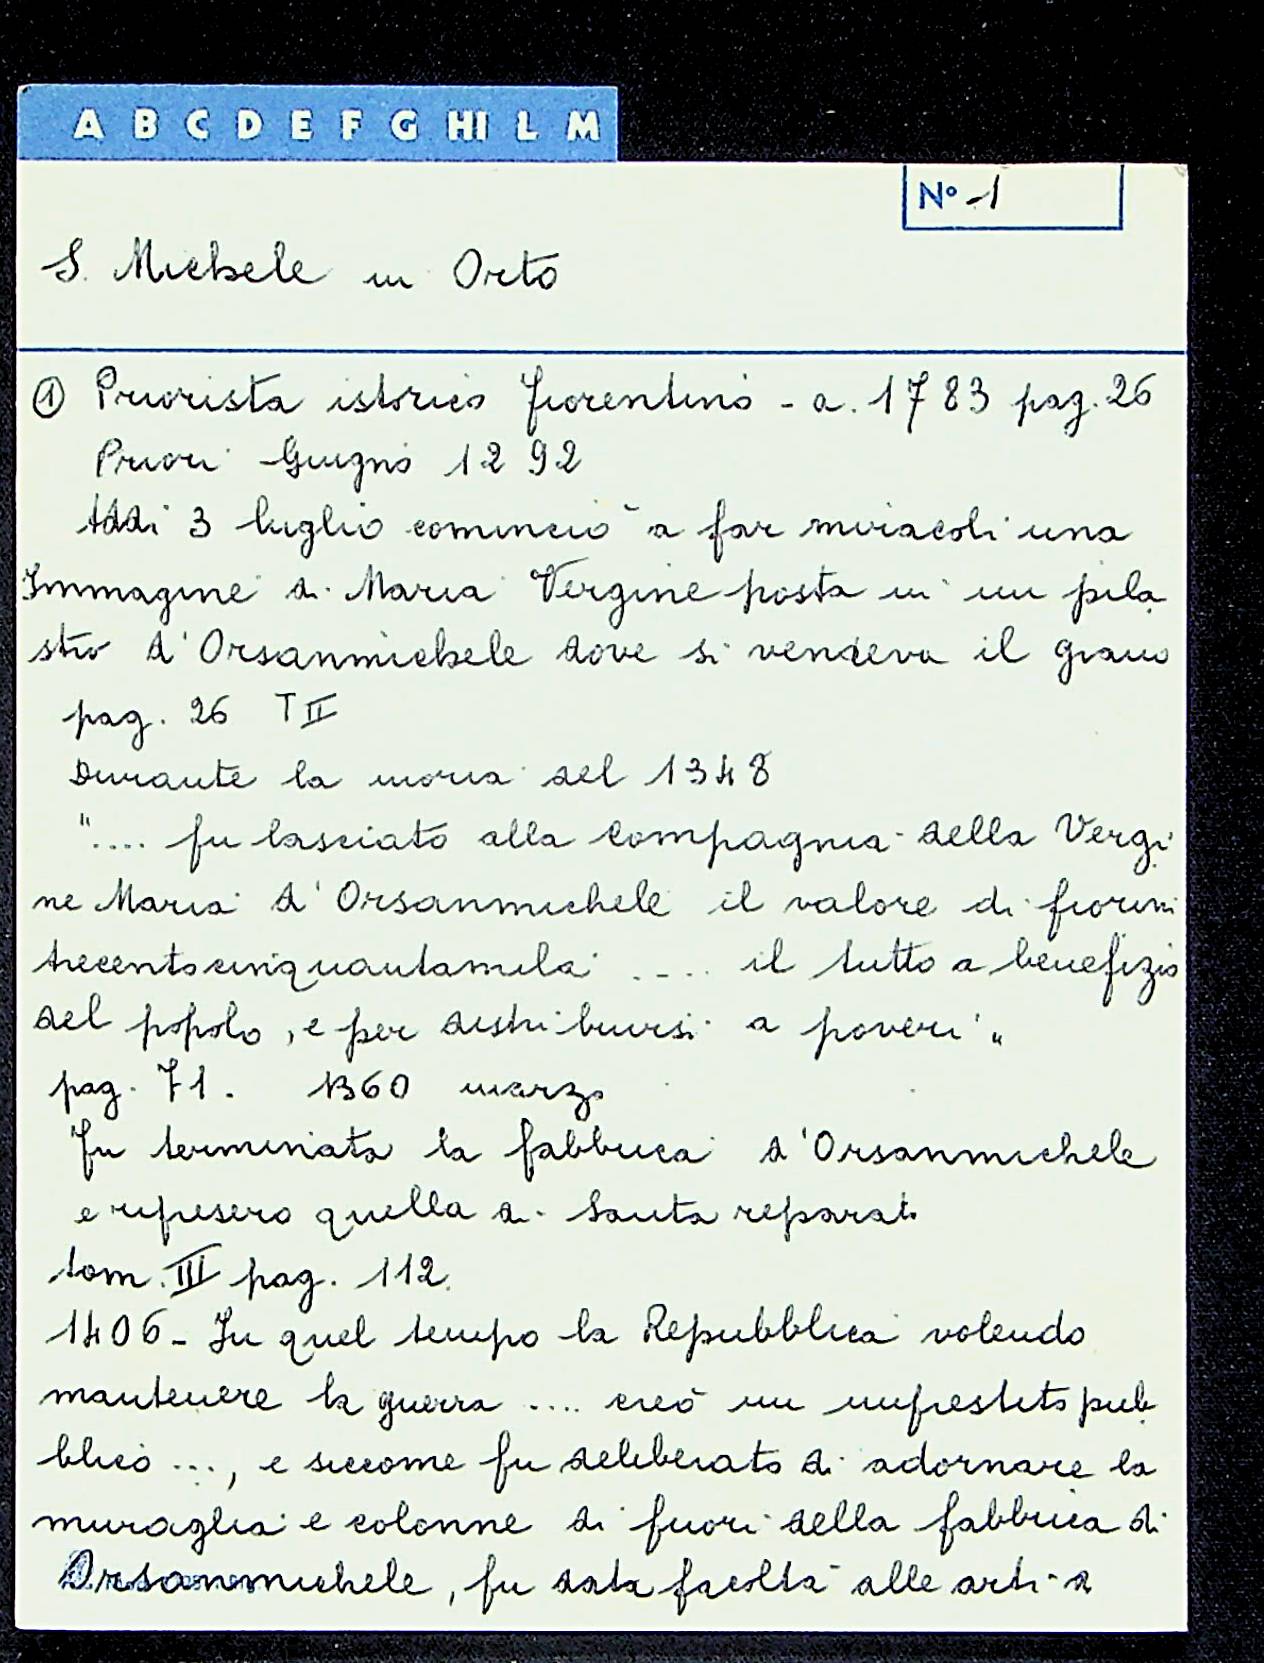 A B C D E F G HI L M
Nº 1
S. Michele in Orto
① Priorista istorico fiorentino - a. 1783 pag. 26
Priori Giugno 1292
Addi 3 luglio cominciò a far miracoli una
Immagine di Maria Vergine posta in un pila
stro d'Orsanmichele dove si vendeva il grano
pag. 26 T II
Durante la moria del 1348
".... fu lasciato alla compagnia della Vergi
ne Maria d'Orsanmichele il valore di fiorini
trecentocinquantamila .... il tutto a benefizio
del popolo, e per distribuirsi a poveri"
pag. 71. 1360 marzo
Fu terminata la fabbrica d'Orsanmichele
e ripresero quella di Santa reparata
tom. III pag. 112.
1406 - In quel tempo la Repubblica volendo
mantenere la guerra .... creò un imprestito pub
blico ..., e siccome fu deliberato di adornare la
muraglia e colonne di fuori della fabbrica di
Orsanmichele, fu data facoltà alle arti a